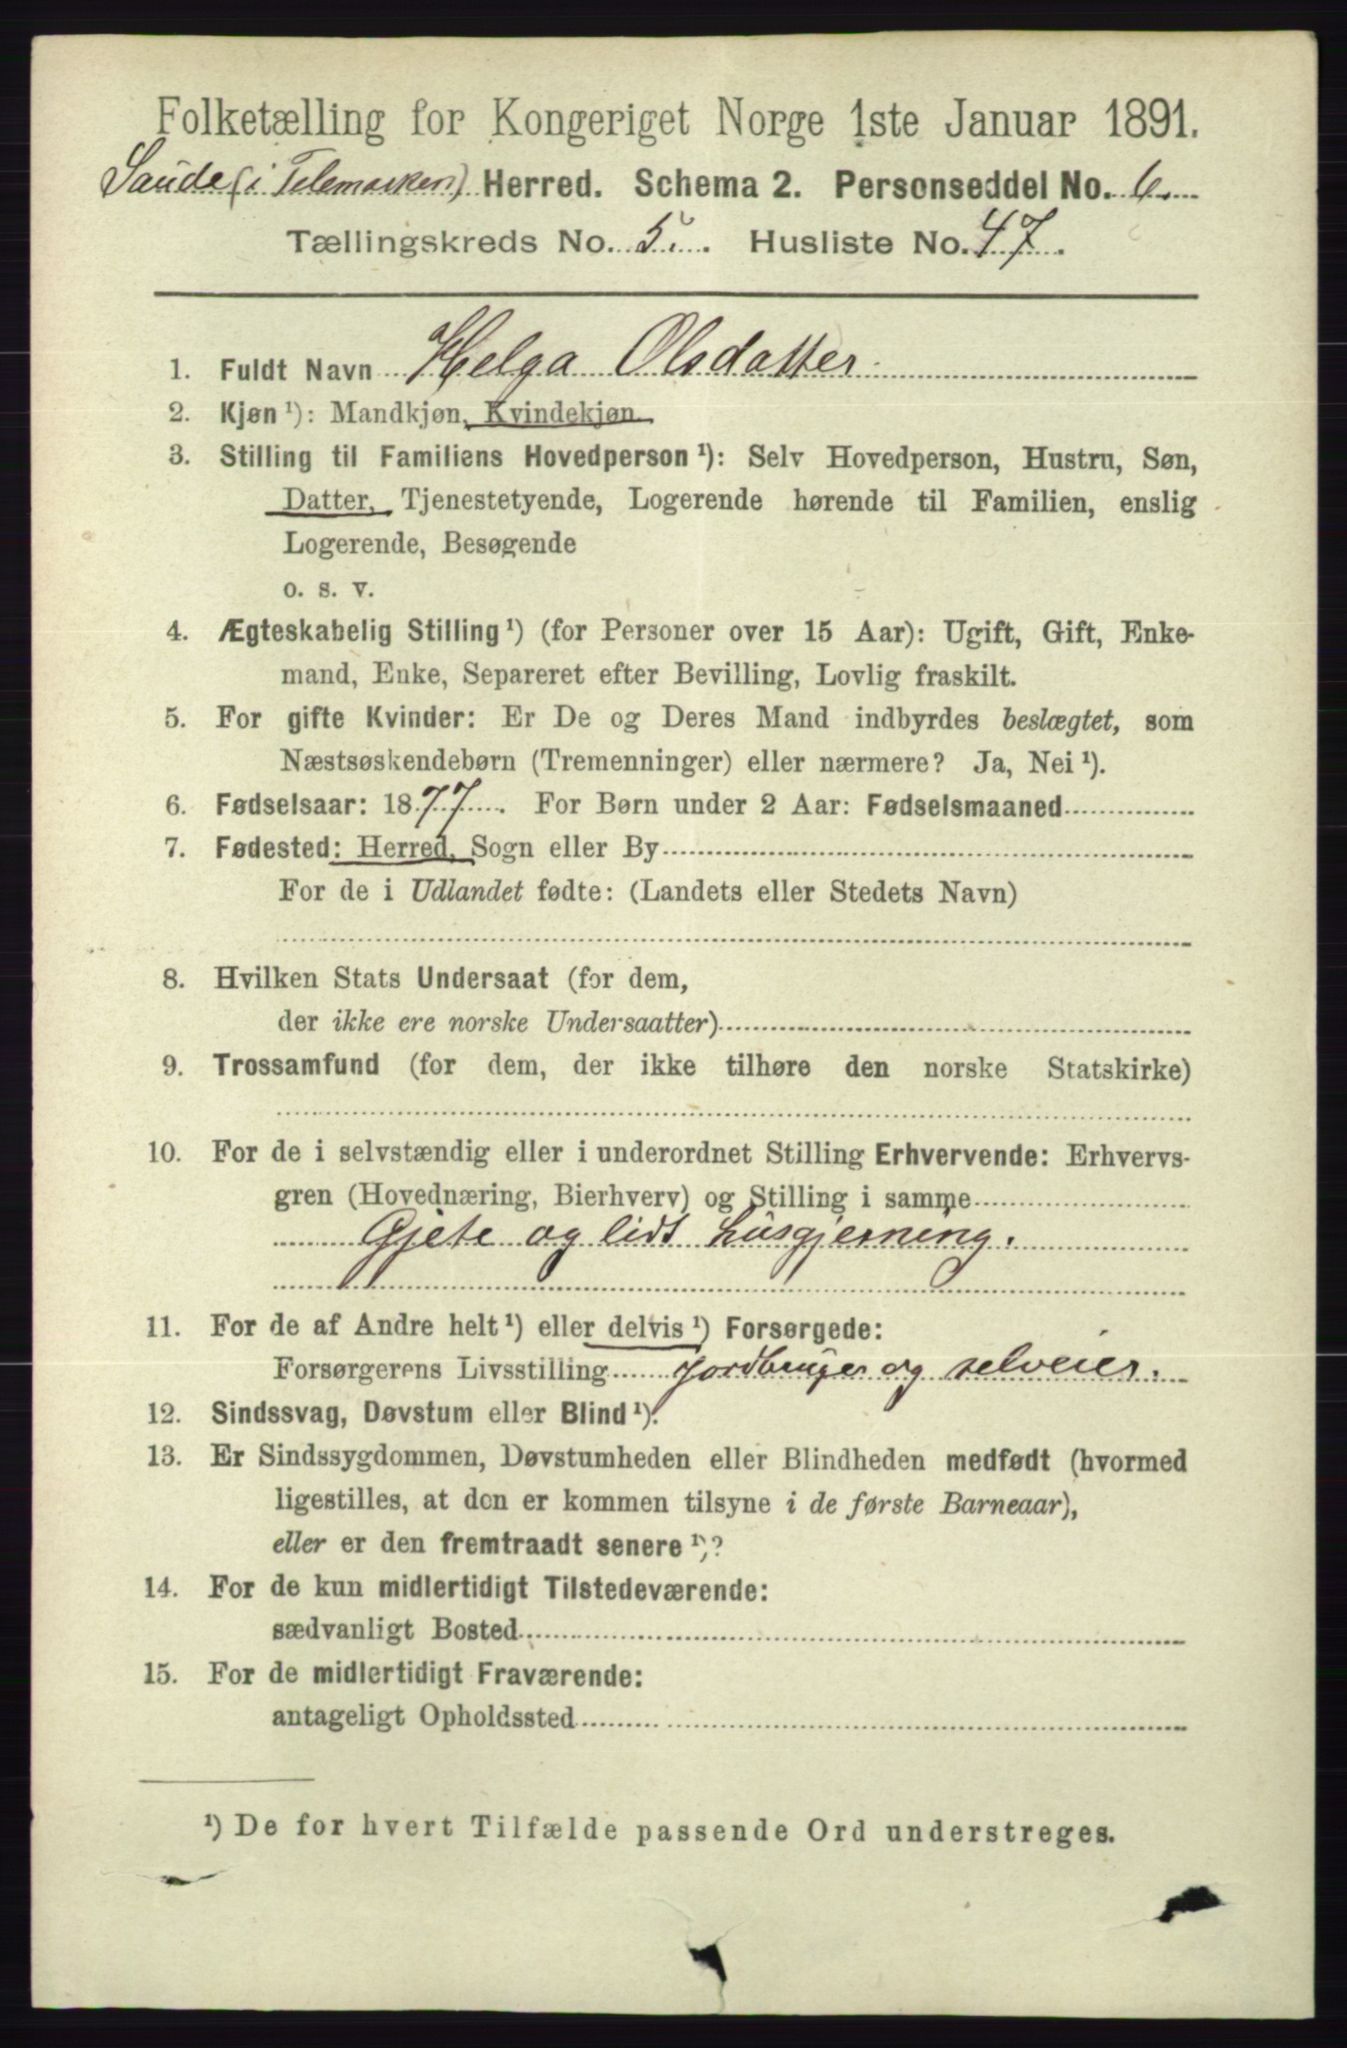 Folketælling for Kongeriget Norge 1ste Januar 1891.
Saude (i Telemarken) Herred. Schema 2. Personseddel No. 6.
Tællingskreds No. 5. Husliste No. 47.
1. Fuldt Navn Helga Olsdatter.
2. Kjøn ¹): Mandkjøn, Kvindekjøn
3. Stilling til Familiens Hovedperson ¹): Selv Hovedperson, Hustru, Søn,
Datter, Tjenestetyende, Logerende hørende til Familien, enslig
Logerende, Besøgende
o. s. v.
4. Ægteskabelig Stilling ¹) (for Personer over 15 Aar): Ugift, Gift, Enke-
mand, Enke, Separeret efter Bevilling, Lovlig fraskilt.
5. For gifte Kvinder: Er De og Deres Mand indbyrdes beslægtet, som
Næstsøskendebørn (Tremenninger) eller nærmere? Ja, Nei ¹).
6. Fødselsaar: 1877. For Børn under 2 Aar: Fødselsmaaned
7. Fødested: Herred, Sogn eller By
For de i Udlandet fødte: (Landets eller Stedets Navn)
8. Hvilken Stats Undersaat (for dem,
der ikke ere norske Undersaatter)
9. Trossamfund (for dem, der ikke tilhøre den norske Statskirke)
10. For de i selvstændig eller i underordnet Stilling Erhvervende: Erhvervs-
gren (Hovednæring, Bierhverv) og Stilling i samme
Gjete og lidt husgjerning.
11. For de af Andre helt ¹) eller delvis ¹) Forsørgede:
Forsørgerens Livsstilling jordbruger og selveier.
12. Sindssvag, Døvstum eller Blind ¹).
13. Er Sindssygdommen, Døvstumheden eller Blindheden medfødt (hvormed
ligestilles, at den er kommen tilsyne i de første Barneaar),
eller er den fremtraadt senere ¹)?
14. For de kun midlertidigt Tilstedeværende:
sædvanligt Bosted
15. For de midlertidigt Fraværende:
antageligt Opholdssted
¹) De for hvert Tilfælde passende Ord understreges.